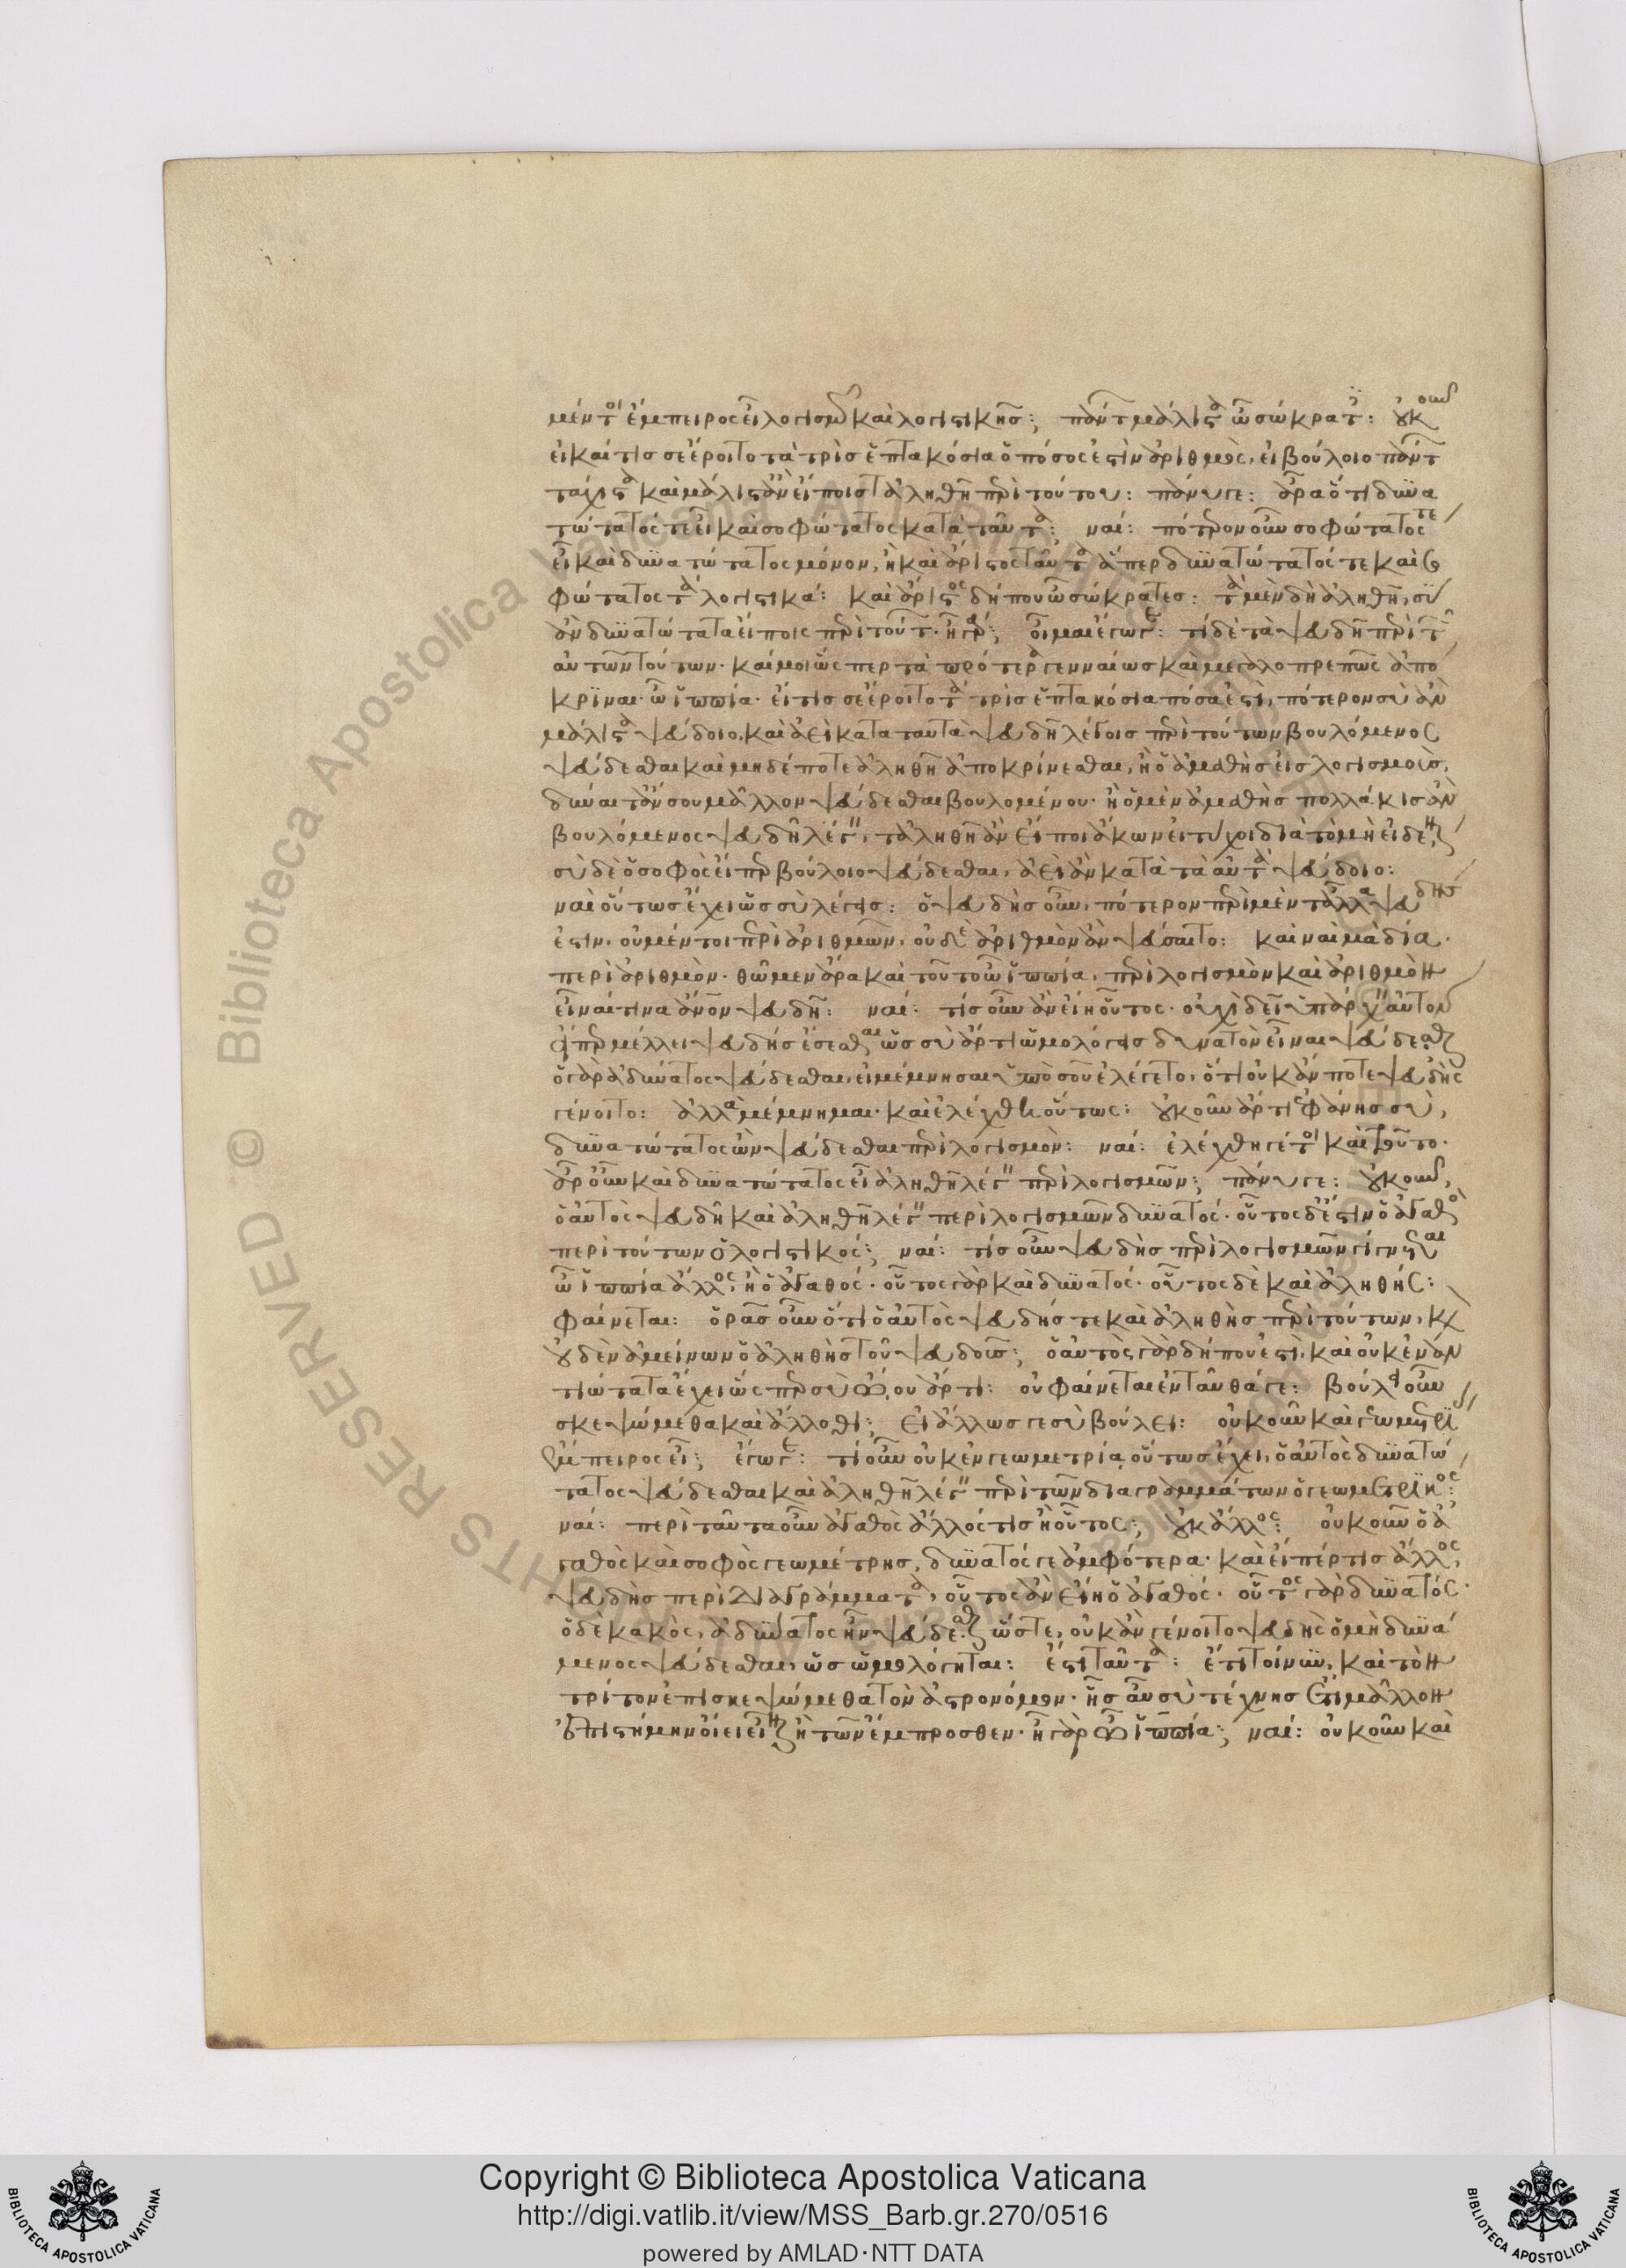 μέντοι ἔμπειρος εἶ λογισμῶν καὶ λογιστικῆς; πάντων μάλιστα ὦ σώκρατες: οὐκοῦν
εἰ καί τις σε ἔροιτο τὰ τρὶς ἑπτακόσια ὁπόσος ἐστὶν ἀριθμὸς, εἰ βούλοιο πάντων
τάχιστα καὶ μάλιστ' ἂν εἴποις τἀληθῆ περὶ τούτου: πάνυ γε: ἆρα ὅτι δυνα
τώτατός τε εἶ καὶ σοφώτατος κατὰ ταῦτα: ναί: πότερον οὖν σοφώτατός τε
εἶ καὶ δυνατώτατος μόνον, ἢ καὶ ἄριστος ταῦτα ἅπερ δυνατώτατός τε καὶ σο
φώτατος τὰ λογιστικά: καὶ ἄριστος δήπου ὦ σώκρατες: τὰ μὲν δὴ ἀληθῆ, σὺ
ἂν δυνατώτατα εἴποις περὶ τούτων. ἦ γάρ; οἶμαι ἔγωγε: τί δὲ τὰ ψευδῆ περὶ τῶν
αὐτῶν τούτων. καί μοι ὥσπερ τὰ πρότερα γενναίως καὶ μεγαλοπρεπῶς ἀπό
κριναι. ὦ ἱππία. εἴ τις σε ἔροιτο τὰ τρὶς ἑπτακόσια πόσα ἐστὶ, πότερον σὺ ἂν
μάλιστα ψεύδοιο, καὶ ἀεὶ κατὰ ταυτὰ ψευδῆ λέγοις περὶ τούτων βουλόμενος
ψεύδεσθαι καὶ μηδέποτε ἀληθῆ ἀποκρίνεσθαι, ἢ ὁ ἀμαθὴς εἰς λογισμοὺς,
δύναιτ' ἄν σου μᾶλλον ψεύδεσθαι βουλομένου. ἢ ὁ μὲν ἀμαθὴς πολλάκις ἂν
βουλόμενος ψευδῆ λέγειν, τἀληθῆ ἂν εἴποι ἄκων εἰ τύχοι διὰ τὸ μὴ εἰδέναι,
σὺ δὲ ὁ σοφὸς εἴπερ βούλοιο ψεύδεσθαι, ἀεὶ ἂν κατὰ τὰ αὐτὰ ψεύδοιο:
ναὶ οὕτως ἔχει ὡς σὺ λέγεις: ὁ ψευδὴς οὖν, πότερον περὶ μὲν τἆλλα ψευδής
ἐστιν, οὐ μέντοι περὶ ἀριθμῶν, οὐδὲ ἀριθμὸν ἂν ψεύσαιτο: καὶ ναὶ μὰ δία.
περὶ ἀριθμόν. θῶμεν ἄρα καὶ τοῦτο ὦ ἱππία, περὶ λογισμὸν καὶ ἀριθμὸν
εἶναί τινα ἄνθρωπον ψευδῆ: ναί: τίς οὖν ἂν εἴη οὗτος. οὐχὶ δεῖ ὑπάρχειν αὐτὸν
εἴπερ μέλλει ψευδὴς ἔσεσθαι ὡς σὺ ἄρτι ὡμολόγεις δυνατὸν εἶναι ψεύδεσθαι
ὁ γὰρ ἀδύνατος ψεύδεσθαι, εἰ μέμνησαι ὑπὸ σοῦ ἐλέγετο, ὅτι οὐκ ἄν ποτε ψευδὴς
γένοιτο: ἀλλὰ μέμνημαι. καὶ ἐλέχθη οὕτως: οὐκοῦν ἄρτι ἐφάνης σὺ,
δυνατώτατος ὢν ψεύδεσθαι περὶ λογισμὸν: ναί: ἐλέχθη γέ τοι καὶ τοῦτο.
ἆρ' οὖν καὶ δυνατώτατος εἶ ἀληθῆ λέγειν περὶ λογισμῶν; πάνυ γε: οὐκοῦν,
ὁ αὐτὸς ψευδῆ καὶ ἀληθῆ λέγειν περὶ λογισμῶν δυνατός. οὗτος δ' ἐστὶν ὁ ἀγαθὸς
περὶ τούτων ὁ λογιστικός; ναί: τίς οὖν ψευδὴς περὶ λογισμῶν γίγνεται
ὦ ἱππία ἄλλος, ἢ ὁ ἀγαθός. οὗτος γὰρ καὶ δυνατός. οὗτος δὲ καὶ ἀληθής:
φαίνεται: ὁρᾷς οὖν ὅτι ὁ αὐτὸς ψευδής τε καὶ ἀληθὴς περὶ τούτων, καὶ
οὐδὲν ἀμείνων ὁ ἀληθὴς τοῦ ψευδοῦς; ὁ αὐτὸς γὰρ δήπου ἐστὶ, καὶ οὐκ ἐναν
τιώτατα ἔχει ὥσπερ σὺ ᾤου ἄρτι: οὐ φαίνεται ἐνταῦθά γε: βούλει οὖν
σκεψώμεθα καὶ ἄλλοθι; εἰ ἄλλως γε σὺ βούλει: οὐκοῦν καὶ γεωμετρίας
ἔμπειρος εἶ; ἔγωγε: τί οὖν οὐκ ἐν γεωμετρίᾳ οὕτως ἔχει, ὁ αὐτὸς δυνατώ
τατος ψεύδεσθαι καὶ ἀληθῆ λέγειν περὶ τῶν διαγραμμάτων ὁ γεωμετρικός:
ναί: περὶ ταῦτα οὖν ἀγαθὸς ἄλλός τις ἢ οὗτος; οὐκ ἄλλος: οὐκοῦν ὁ ἀ
γαθὸς καὶ σοφὸς γεωμέτρης, δυνατός γε ἀμφότερα. καὶ εἴπέρ τις ἄλλος,
ψευδὴς περὶ διαγράμματα, οὗτος ἂν εἴη ὁ ἀγαθός. οὗτος γὰρ δυνατός.
ὁ δὲ κακὸς, ἀδύνατος ἦν ψεύδεσθαι ὥστε, οὐκ ἂν γένοιτο ψευδὴς ὁ μὴ δυνά
μενος ψεύδεσθαι, ὡς ὡμολόγηται: ἔστι ταῦτα: ἔτι τοίνυν, καὶ τὸν
τρίτον ἐπισκεψώμεθα τὸν ἀστρονόμον. ἧς αὖ σὺ τέχνης ἔτι μᾶλλον
ἐπιστήμην οἴει εἶναι ἢ τῶν ἔμπροσθεν. ἦ γὰρ ὦ ἱππία; ναί: οὐκοῦν καὶ
Copyright © Biblioteca Apostolica Vaticana
http://digi.vatlib.it/view/MSS_Barb.gr.270/0516
powered by AMLAD·NTT DATA